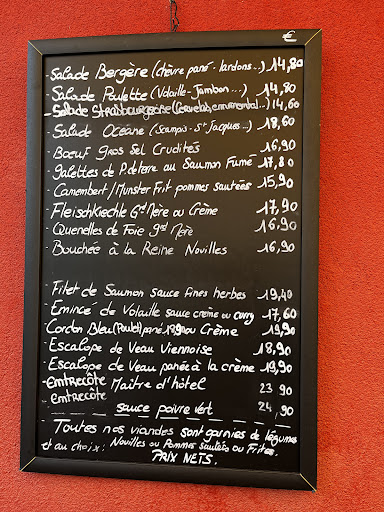 €
- Salade Bergère (chèvre pané - lardons...) 14,80
- Salade Poulette (Volaille - Jambon...) 14,80
- Salade Strasbourgeoise (Cervelas, emmental..) 14,60
- Salade Océane (Scampis - St Jacques...) 18,60
- Boeuf gros sel Crudités 16,90
- galettes de P. de terre au Saumon Fumé 17,80
- Camembert / Munster Frit pommes sautées 15,90
- Fleischkiechle Gd Mère ou Crème 17,90
- Quenelles de Foie gd Mère 16,90
- Bouchée à la Reine Nouilles 16,90
- Filet de Saumon sauce fines herbes 19,40
- Emincé de Volaille sauce crème ou curry 17,60
- Cordon Bleu (Poulet) pané ou Crème 19,90
- Escalope de Veau Viennoise 18,90
- Escalope de Veau panée à la crème 19,90
- Entrecôte Maître d'hôtel 23,90
- Entrecôte
sauce poivre vert 24,90
- Toutes nos viandes sont garnies de légumes
et au choix : Nouilles ou Pommes Sautées ou Frites.
PRIX NETS.